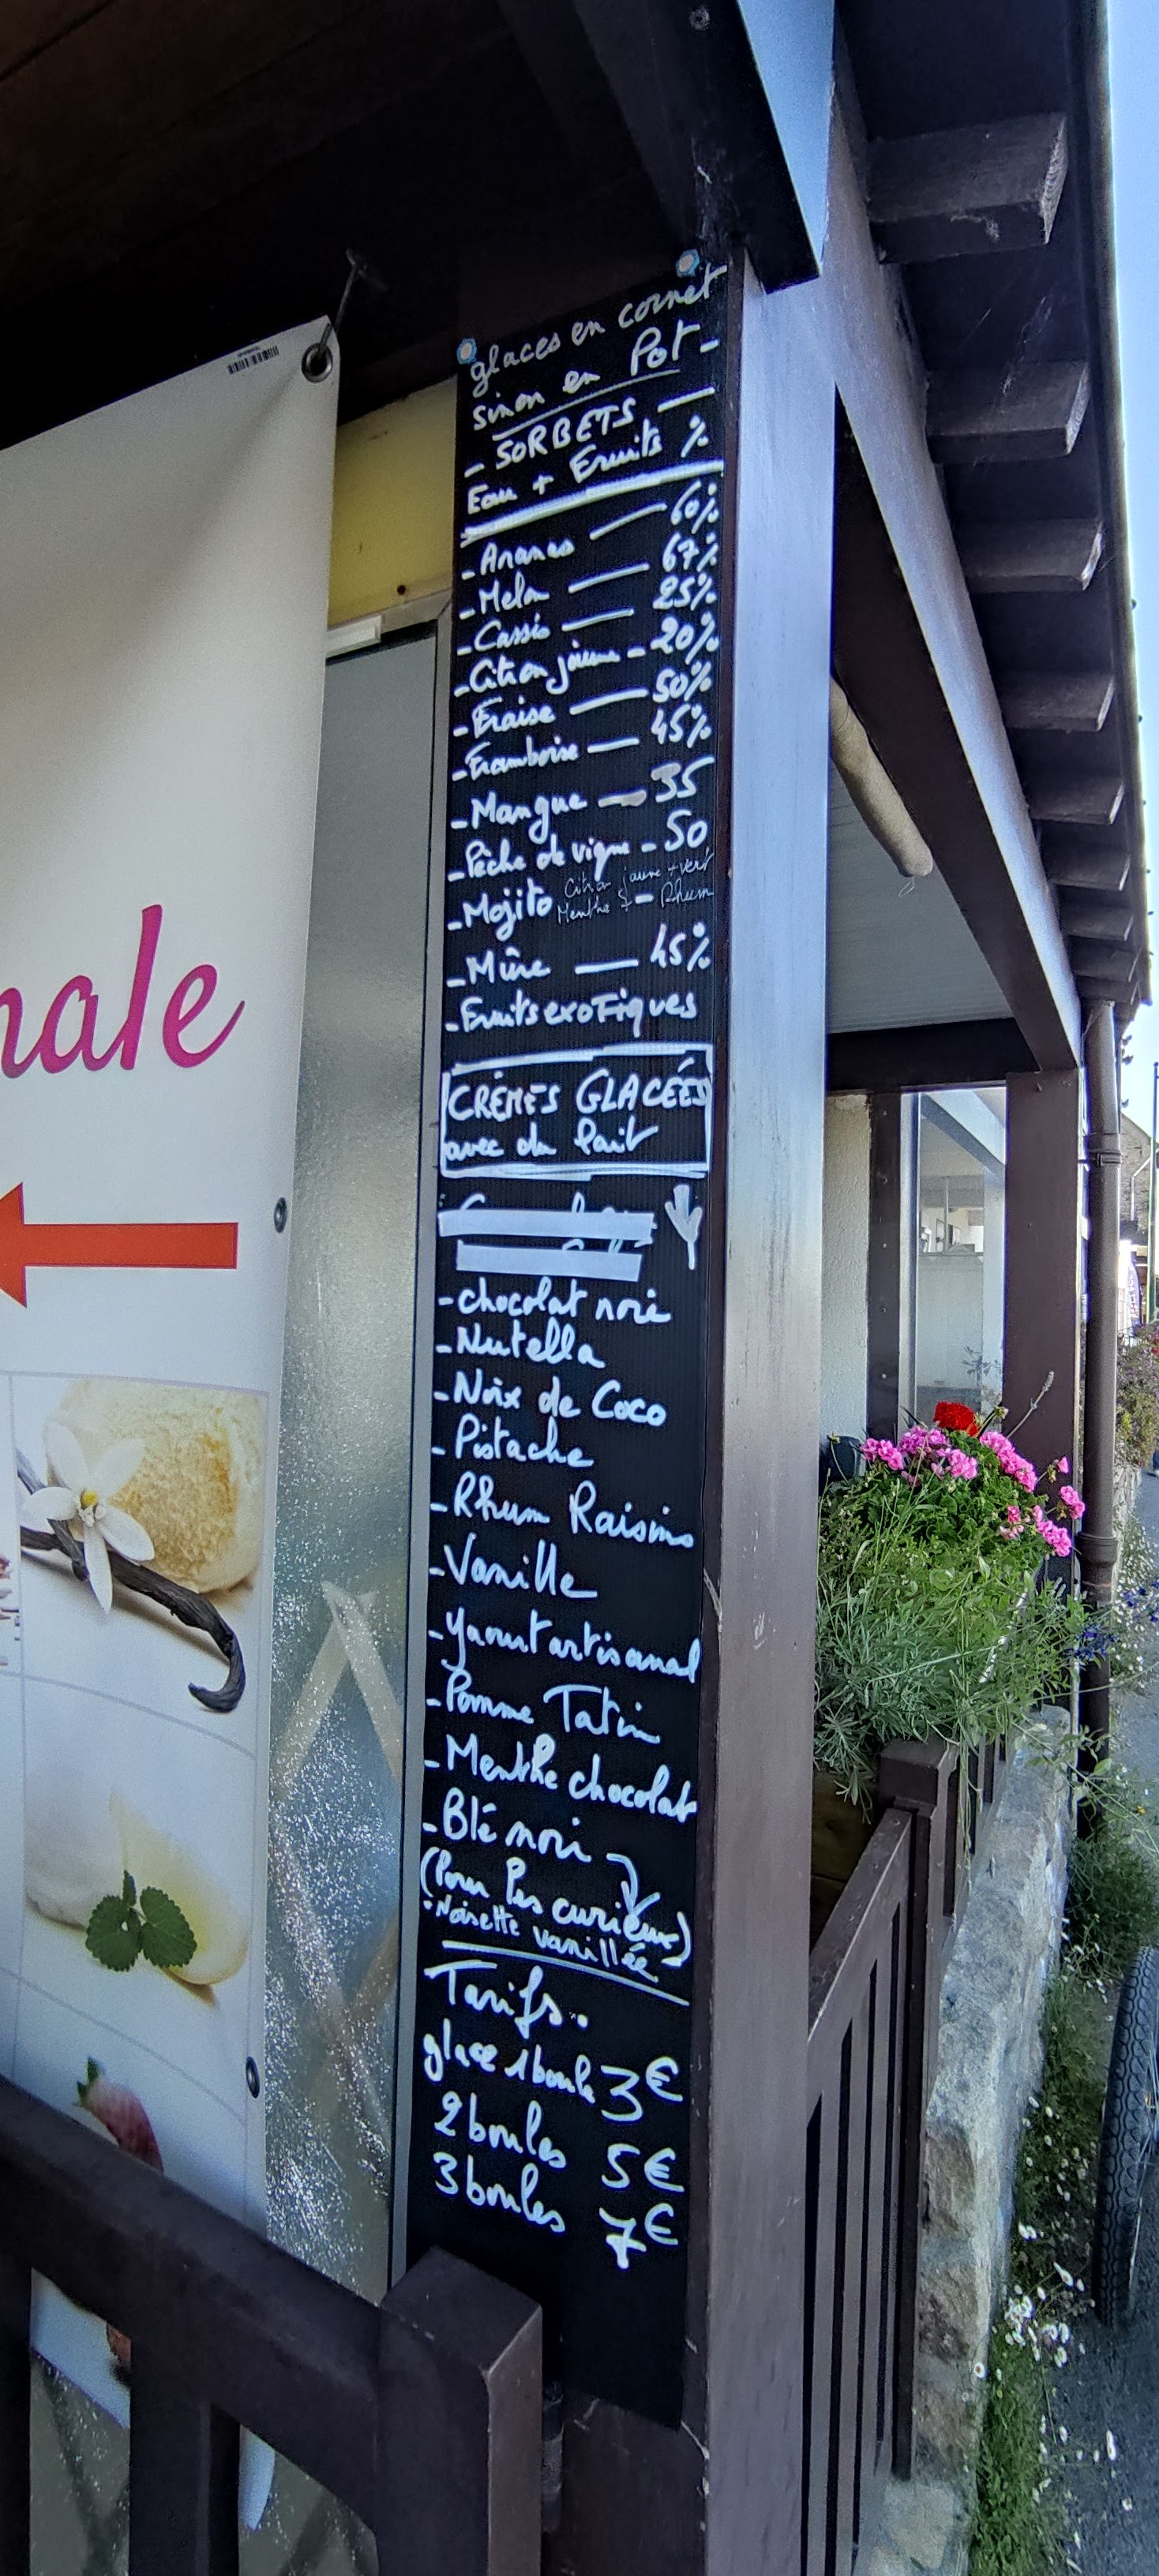 glaces en cornet
sinon en Pot-
- SORBETS —
Eau + Fruits %
- Ananas — 60%
- Melon — 67%
- Cassis — 25%
- Citron jaune - 20%
- Fraise — 50%
- Framboise — 45%
- Mangue — 35
- Pêche de vigne - 50
- Mojito Citron jaune + vert
Menthe & - Rhum
- Mûre — 45%
- Fruits exoTiques
CRÈMES GLACÉES
avec du lait
- chocolat noir
- Nutella
- Noix de Coco
- Pistache
- Rhum Raisins
- Vanille
- yaourt artisanal
- Pomme Tatin
- Menthe chocolat
- Blé noir
(Pour les curieux)
- Noisette vanillée
Tarifs..
glace 1 boule 3€
2 boules 5€
3 boules 7€
nale